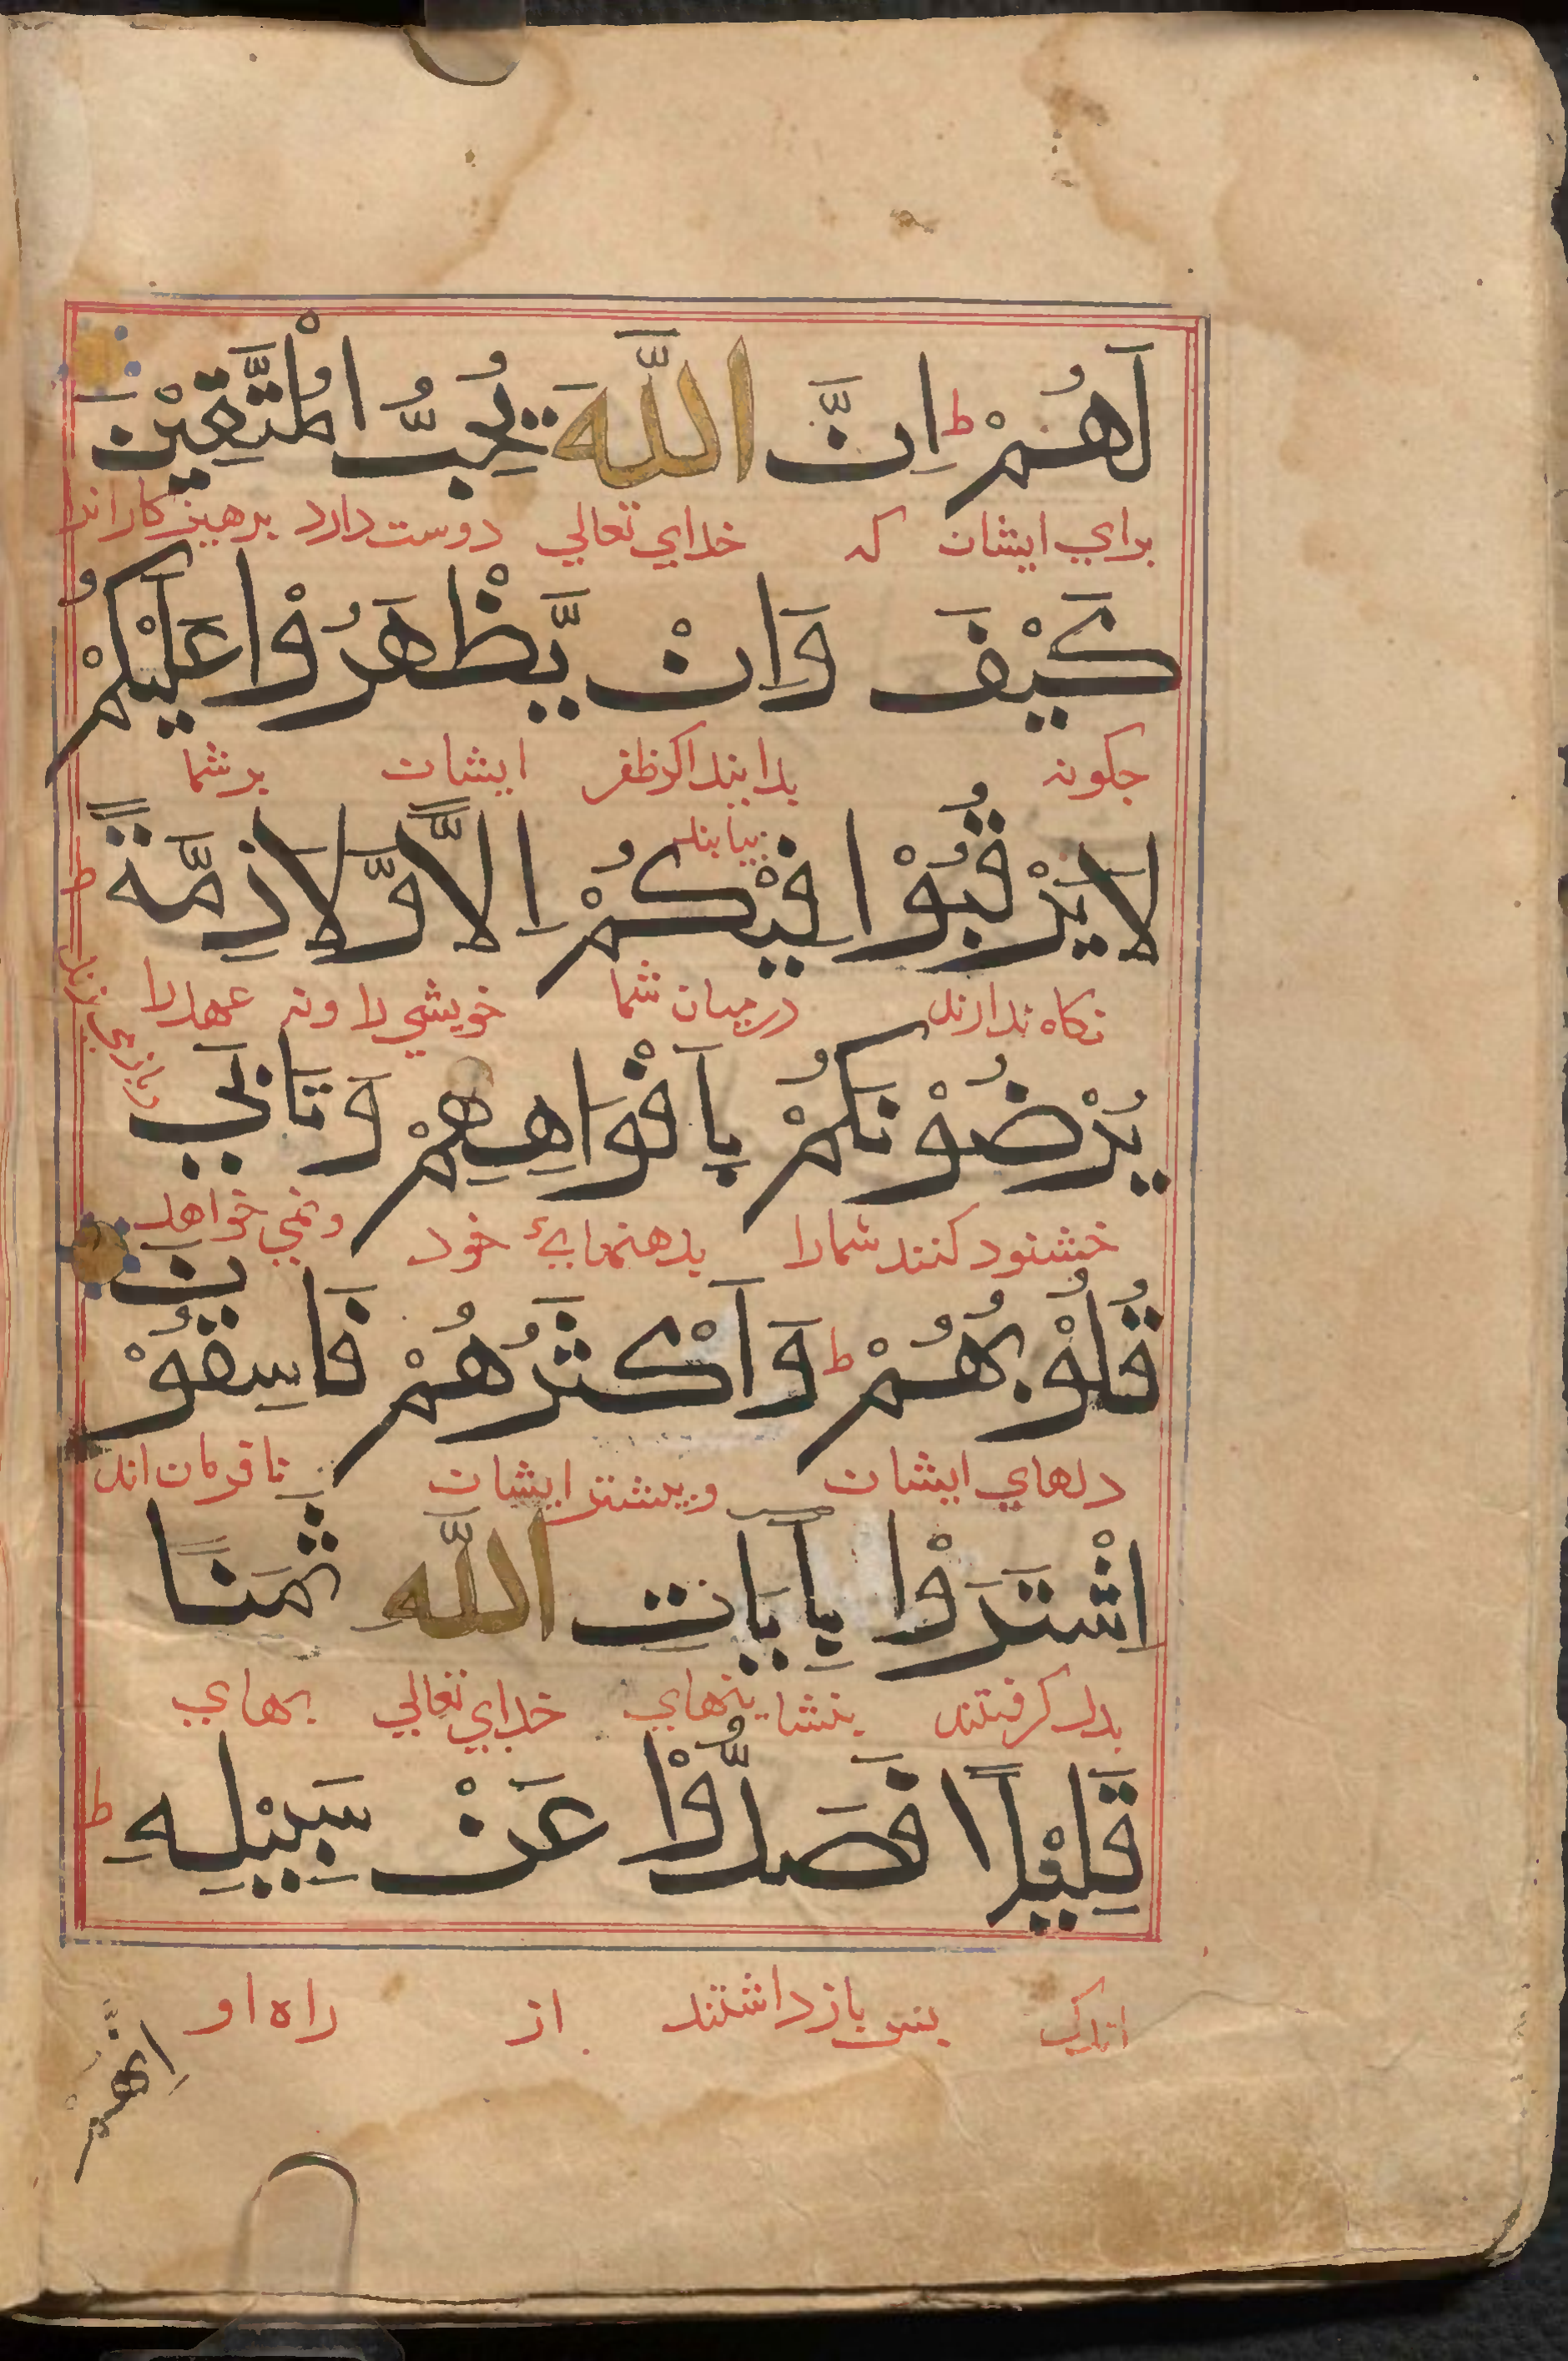 لَهُمْ ط اِنَّ اللّٰهَ يُحِبُّ الْمُتَّقِيْنَ
براي ايشان كه خداي تعالي دوست دارد پرهيزكاران را
كَيْفَ وَاِنْ يَّظْهَرُوْا عَلَيْكُمْ
چكونه بدانيد اكر ظفر ايشان بر شما
بيابند
لَا يَرْقُبُوْا فِيْكُمْ اِلًّا وَّلَا ذِمَّةً ط
نكاه ندارند درميان شما خويشي را ونه عهد را
يُرْضُوْنَكُمْ بِاَفْوَاهِهِمْ وَتَاْبٰي
خشنود كنند شما را بدهنهايء خود ونمي خواهد
قُلُوْبُهُمْ ط وَاَكْثَرُهُمْ فَاسِقُوْنَ
دلهاي ايشان وبيشتر ايشان نافرمان اند
اِشْتَرَوْا بِاٰيَاتِ اللّٰهِ ثَمَنًا
بدل كرفتند بنشانيهاي خداي تعالي بهاي
قَلِيْلًا فَصَدُّوْا عَنْ سَبِيْلِهِ ط
اندكي پس باز داشتند از راه او
اِنَّهُمْ